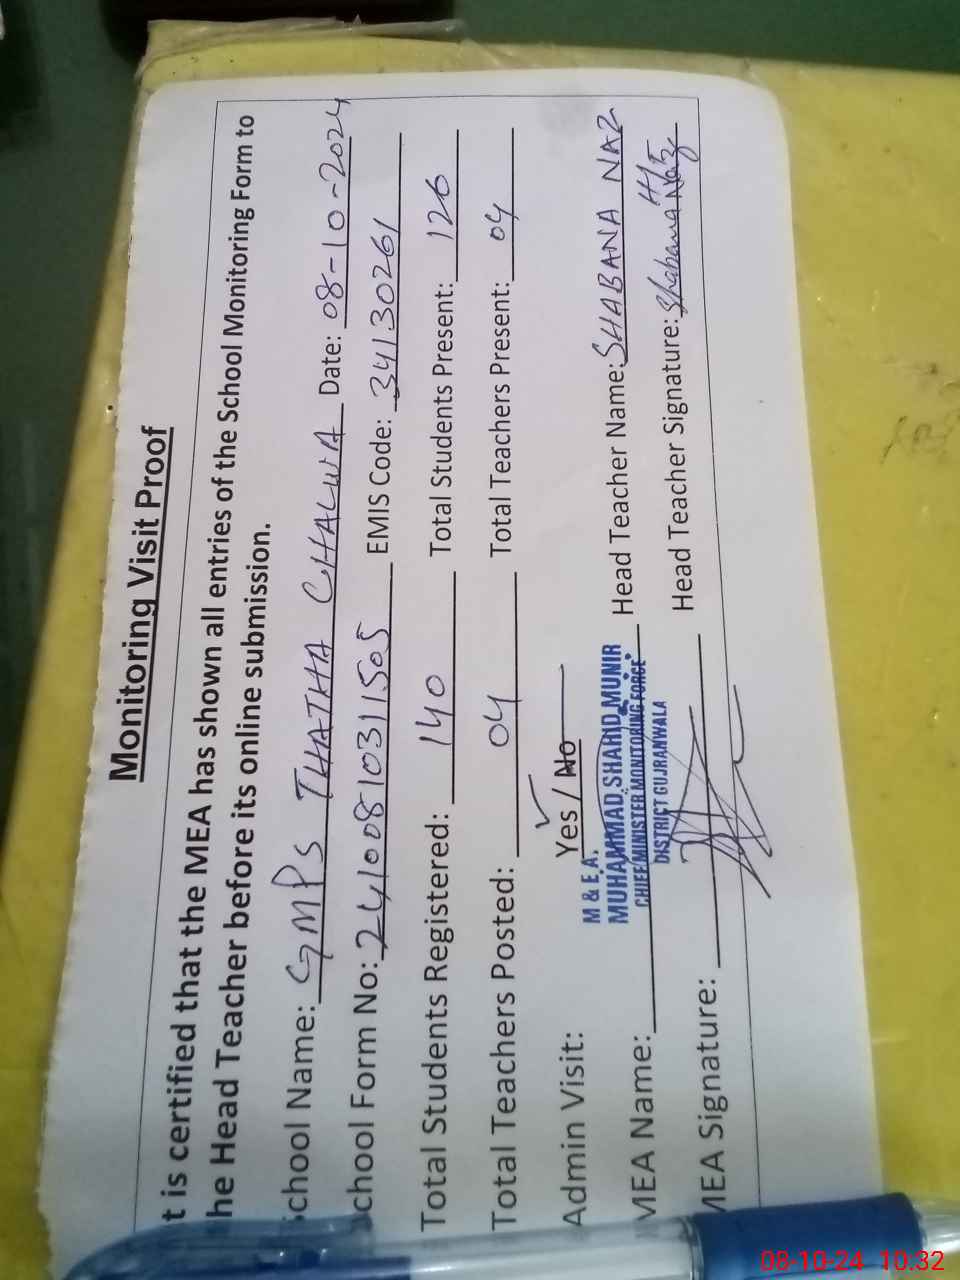 Monitoring Visit Proof
t is certified that the MEA has shown all entries of the School Monitoring Form to
he Head Teacher before its online submission.
School Name: GMPS THATHA CHALWA Date: 08-10-2024
School Form No: 241008103111505 EMIS Code: 34130261
Total Students Registered: 140 Total Students Present: 126
Total Teachers Posted: 04 Total Teachers Present: 04
Admin Visit: Yes / No
M & E A.
MUHAMMAD SHAHID MUNIR
CHIEF MINISTER MONITORING FORCE
DISTRICT GUJRANWALA
MEA Name: Head Teacher Name: SHABANA NAZ
MEA Signature: Head Teacher Signature: Shabana Naz
08-10-24 10:32